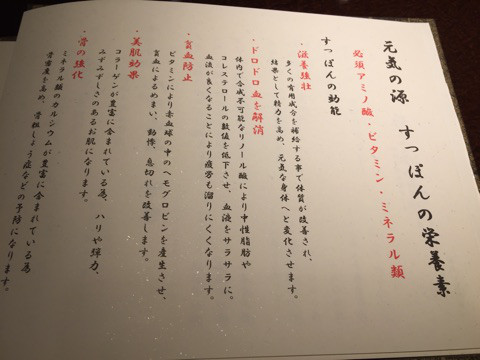 元気の源 すっぽんの栄養素
必須アミノ酸・ビタミン・ミネラル類
すっぽんの効能
・滋養強壮
多くの有用成分を補給する事で体質が改善され、
結果として精力を高め、元気な身体へと変化させます。
・ドロドロ血を解消
体内で合成不可能なリノール酸により中性脂肪や
コレステロールの数値を低下させ、血液をサラサラに。
血流が良くなることにより疲労も溜りにくくなります。
・貧血防止
ビタミンにより赤血球の中のヘモグロビンを産生させ、
貧血によるめまい、動悸、息切れを改善します。
・美肌効果
コラーゲンが豊富に含まれている為、ハリや弾力、
みずみずしさのあるお肌になります。
・骨の強化
ミネラル類のカルシウムが豊富に含まれている為
骨密度を高め、骨粗しょう症などの予防になります。